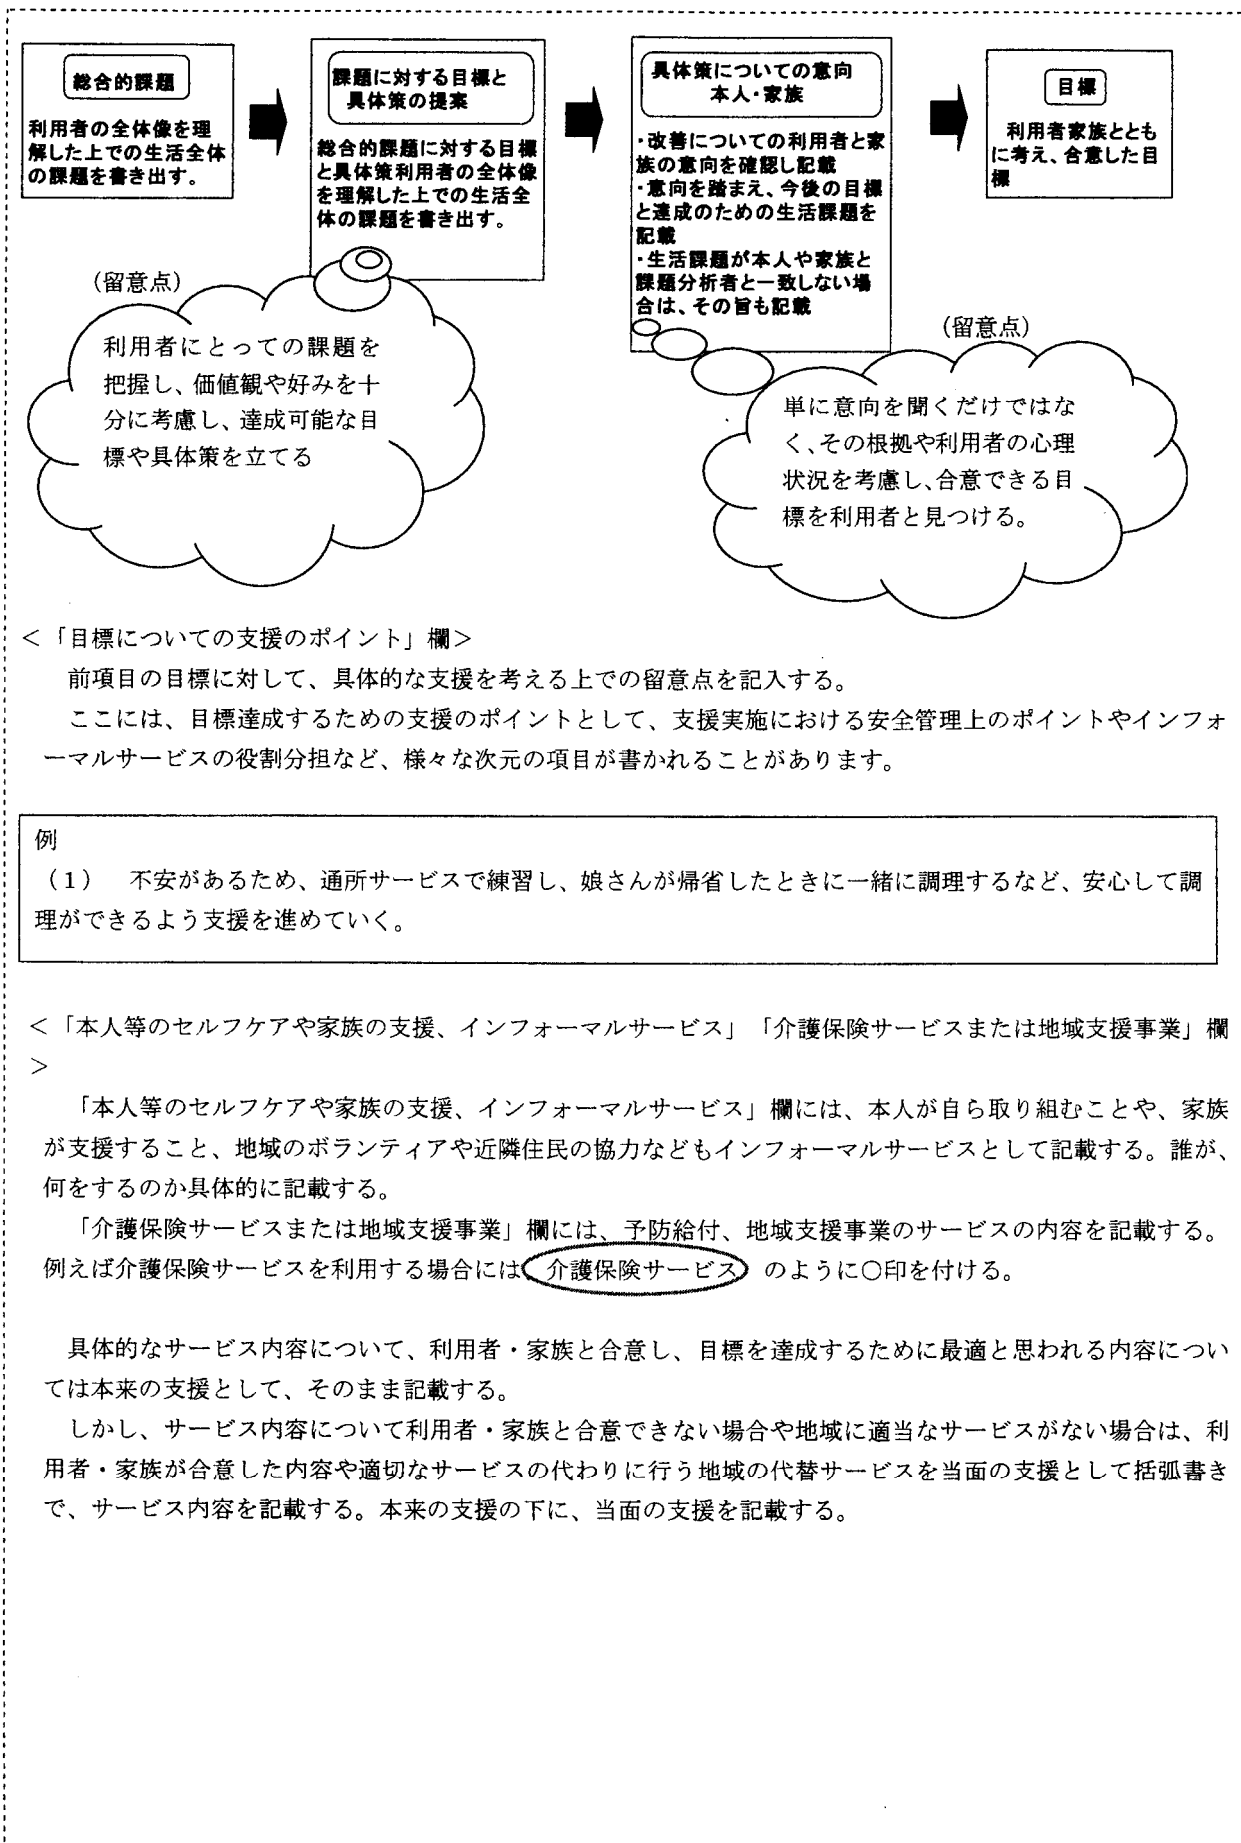 総合的課題
利用者の全体像を理
解した上での生活全体
の課題を書き出す。
課題に対する目標と
具体策の提案
総合的課題に対する目標
と具体策利用者の全体像
を理解した上での生活全
体の課題を書き出す。
具体策についての意向
本人・家族
・改善についての利用者と家
族の意向を確認し記載
・意向を踏まえ、今後の目標
と達成のための生活課題を
記載
・生活課題が本人や家族と
課題分析者と一致しない場
合は、その旨も記載
目標
利用者家族ととも
に考え、合意した目
標
(留意点)
利用者にとっての課題を
把握し、価値観や好みを十
分に考慮し、達成可能な目
標や具体策を立てる
(留意点)
単に意向を聞くだけではな
く、その根拠や利用者の心理
状況を考慮し、合意できる目
標を利用者と見つける。
＜「目標についての支援のポイント」欄＞
前項目の目標に対して、具体的な支援を考える上での留意点を記入する。
ここには、目標達成するための支援のポイントとして、支援実施における安全管理上のポイントやインフォ
ーマルサービスの役割分担など、様々な次元の項目が書かれることがあります。
例
（１）　不安があるため、通所サービスで練習し、娘さんが帰省したときに一緒に調理するなど、安心して調
理ができるよう支援を進めていく。
＜「本人等のセルフケアや家族の支援、インフォーマルサービス」「介護保険サービスまたは地域支援事業」欄
＞
「本人等のセルフケアや家族の支援、インフォーマルサービス」欄には、本人が自ら取り組むことや、家族
が支援すること、地域のボランティアや近隣住民の協力などもインフォーマルサービスとして記載する。誰が、
何をするのか具体的に記載する。
「介護保険サービスまたは地域支援事業」欄には、予防給付、地域支援事業のサービスの内容を記載する。
例えば介護保険サービスを利用する場合には 介護保険サービス のように○印を付ける。
具体的なサービス内容について、利用者・家族と合意し、目標を達成するために最適と思われる内容につい
ては本来の支援として、そのまま記載する。
しかし、サービス内容について利用者・家族と合意できない場合や地域に適当なサービスがない場合は、利
用者・家族が合意した内容や適切なサービスの代わりに行う地域の代替サービスを当面の支援として括弧書き
で、サービス内容を記載する。本来の支援の下に、当面の支援を記載する。